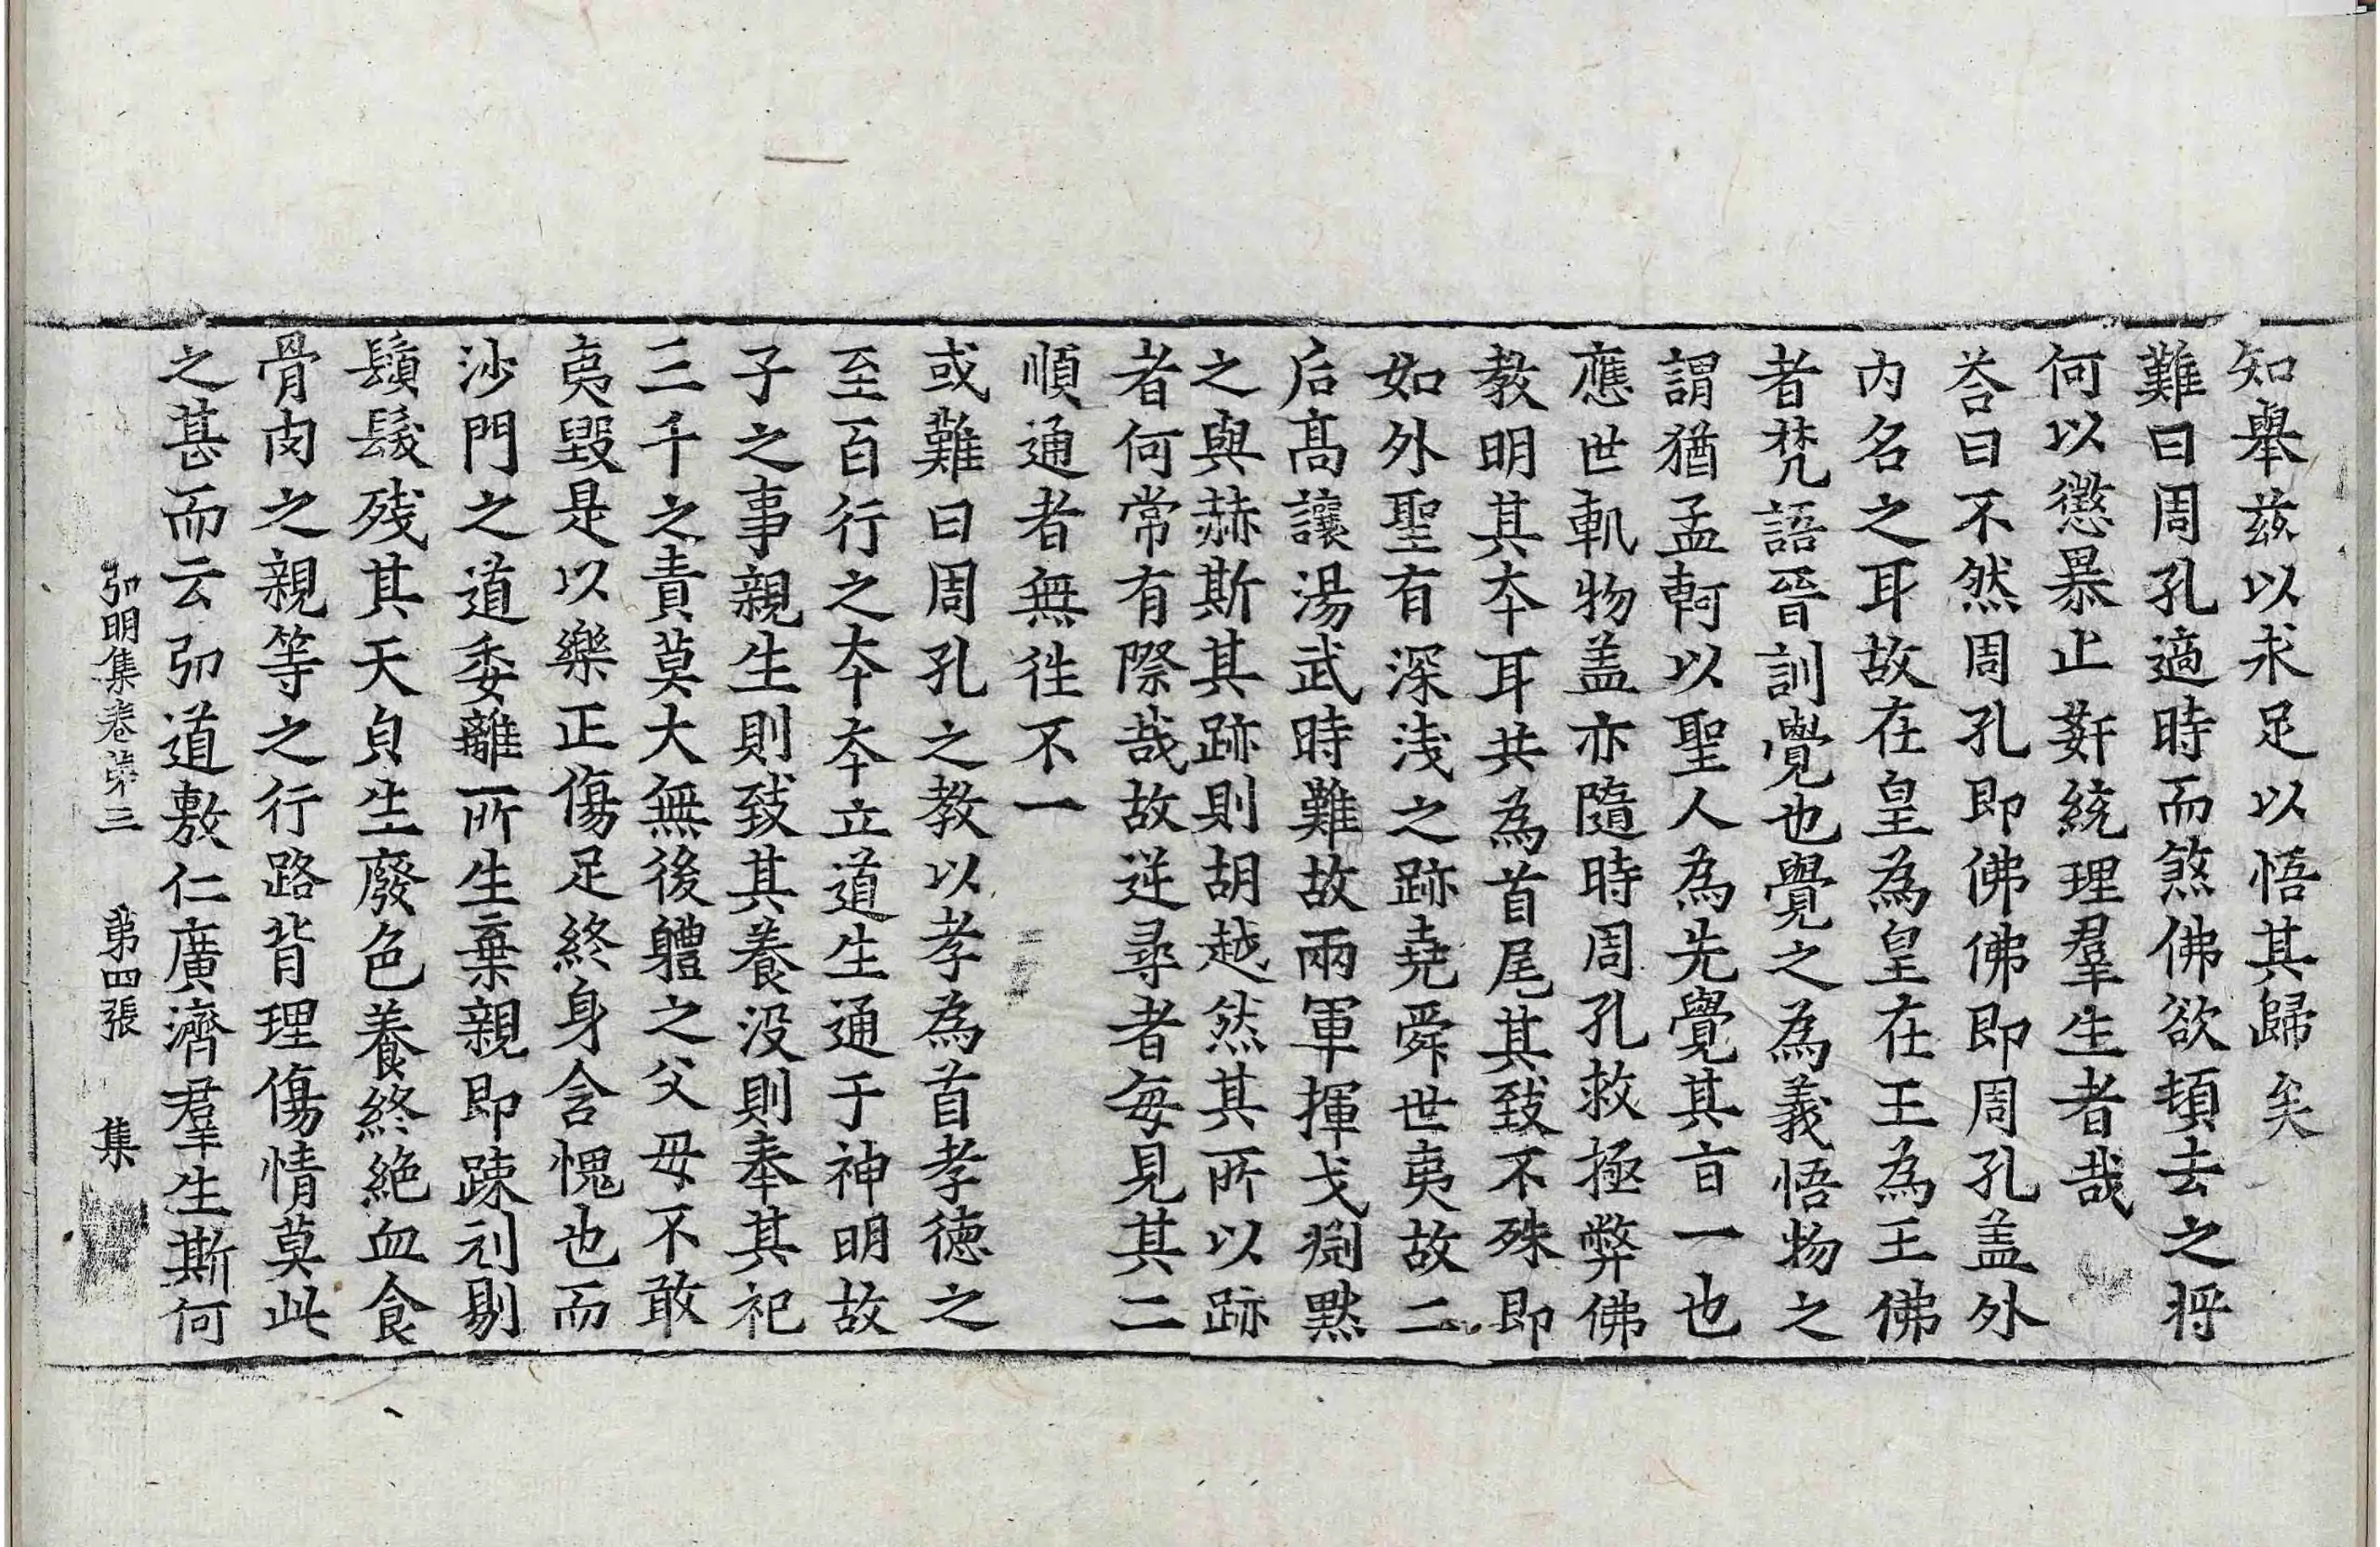 知舉兹以求足以悟其歸矣
難曰周孔適時而煞佛欲頓去之将
何以懲暴止姧統理羣生者哉
荅曰不然周孔即佛佛即周孔盖外
内名之耳故在皇為皇在王為王佛
者梵語晉訓覺也覺之為義悟物之
謂猶孟軻以聖人為先覺其㫖一也
應世軌物盖亦隨時周孔救極弊佛
教明其夲耳共為首尾其致不殊即
如外聖有深淺之跡堯舜世夷故二
后髙讓湯武時難故兩軍揮戈淵黙
之與赫斯其跡則胡越然其所以跡
者何常有際哉故逆尋者每見其二
順通者無往不一
或難曰周孔之教以孝為首孝德之
至百行之夲夲立道生通于神明故
子之事親生則致其養没則奉其祀
三千之責莫大無後體之父母不敢
夷毀是以樂正傷足終身含愧也而
沙門之道委離所生棄親即踈刓剔
鬚髮殘其天皃生廢色養終絶血食
骨肉之親等之行路背理傷情莫此
之甚而云弘道敷仁廣濟羣生斯何
弘明集卷第三　第四張　集